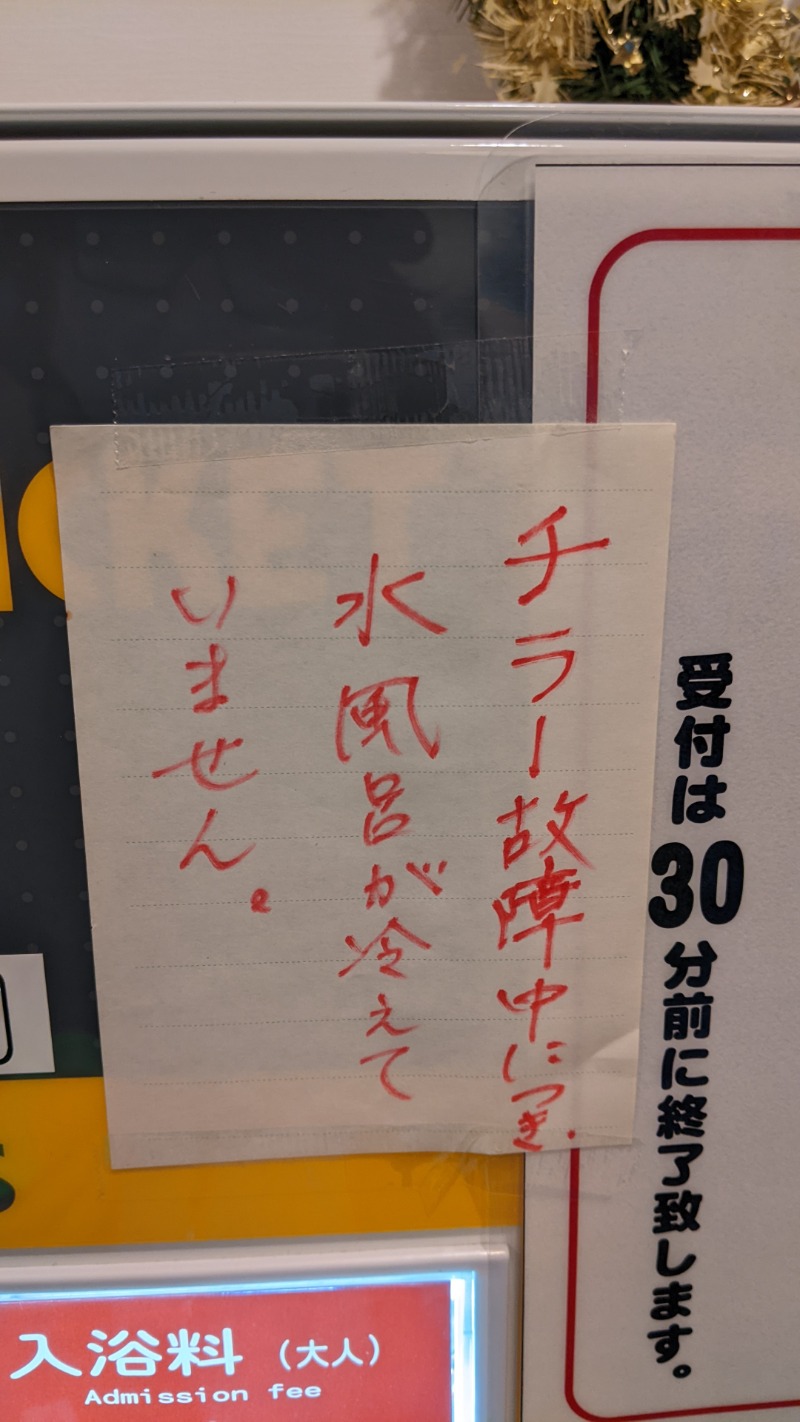 チラー故障中につき.
水風呂が冷えて
いません。
受付は30分前に終了致します。
入浴料（大人）
Admission fee